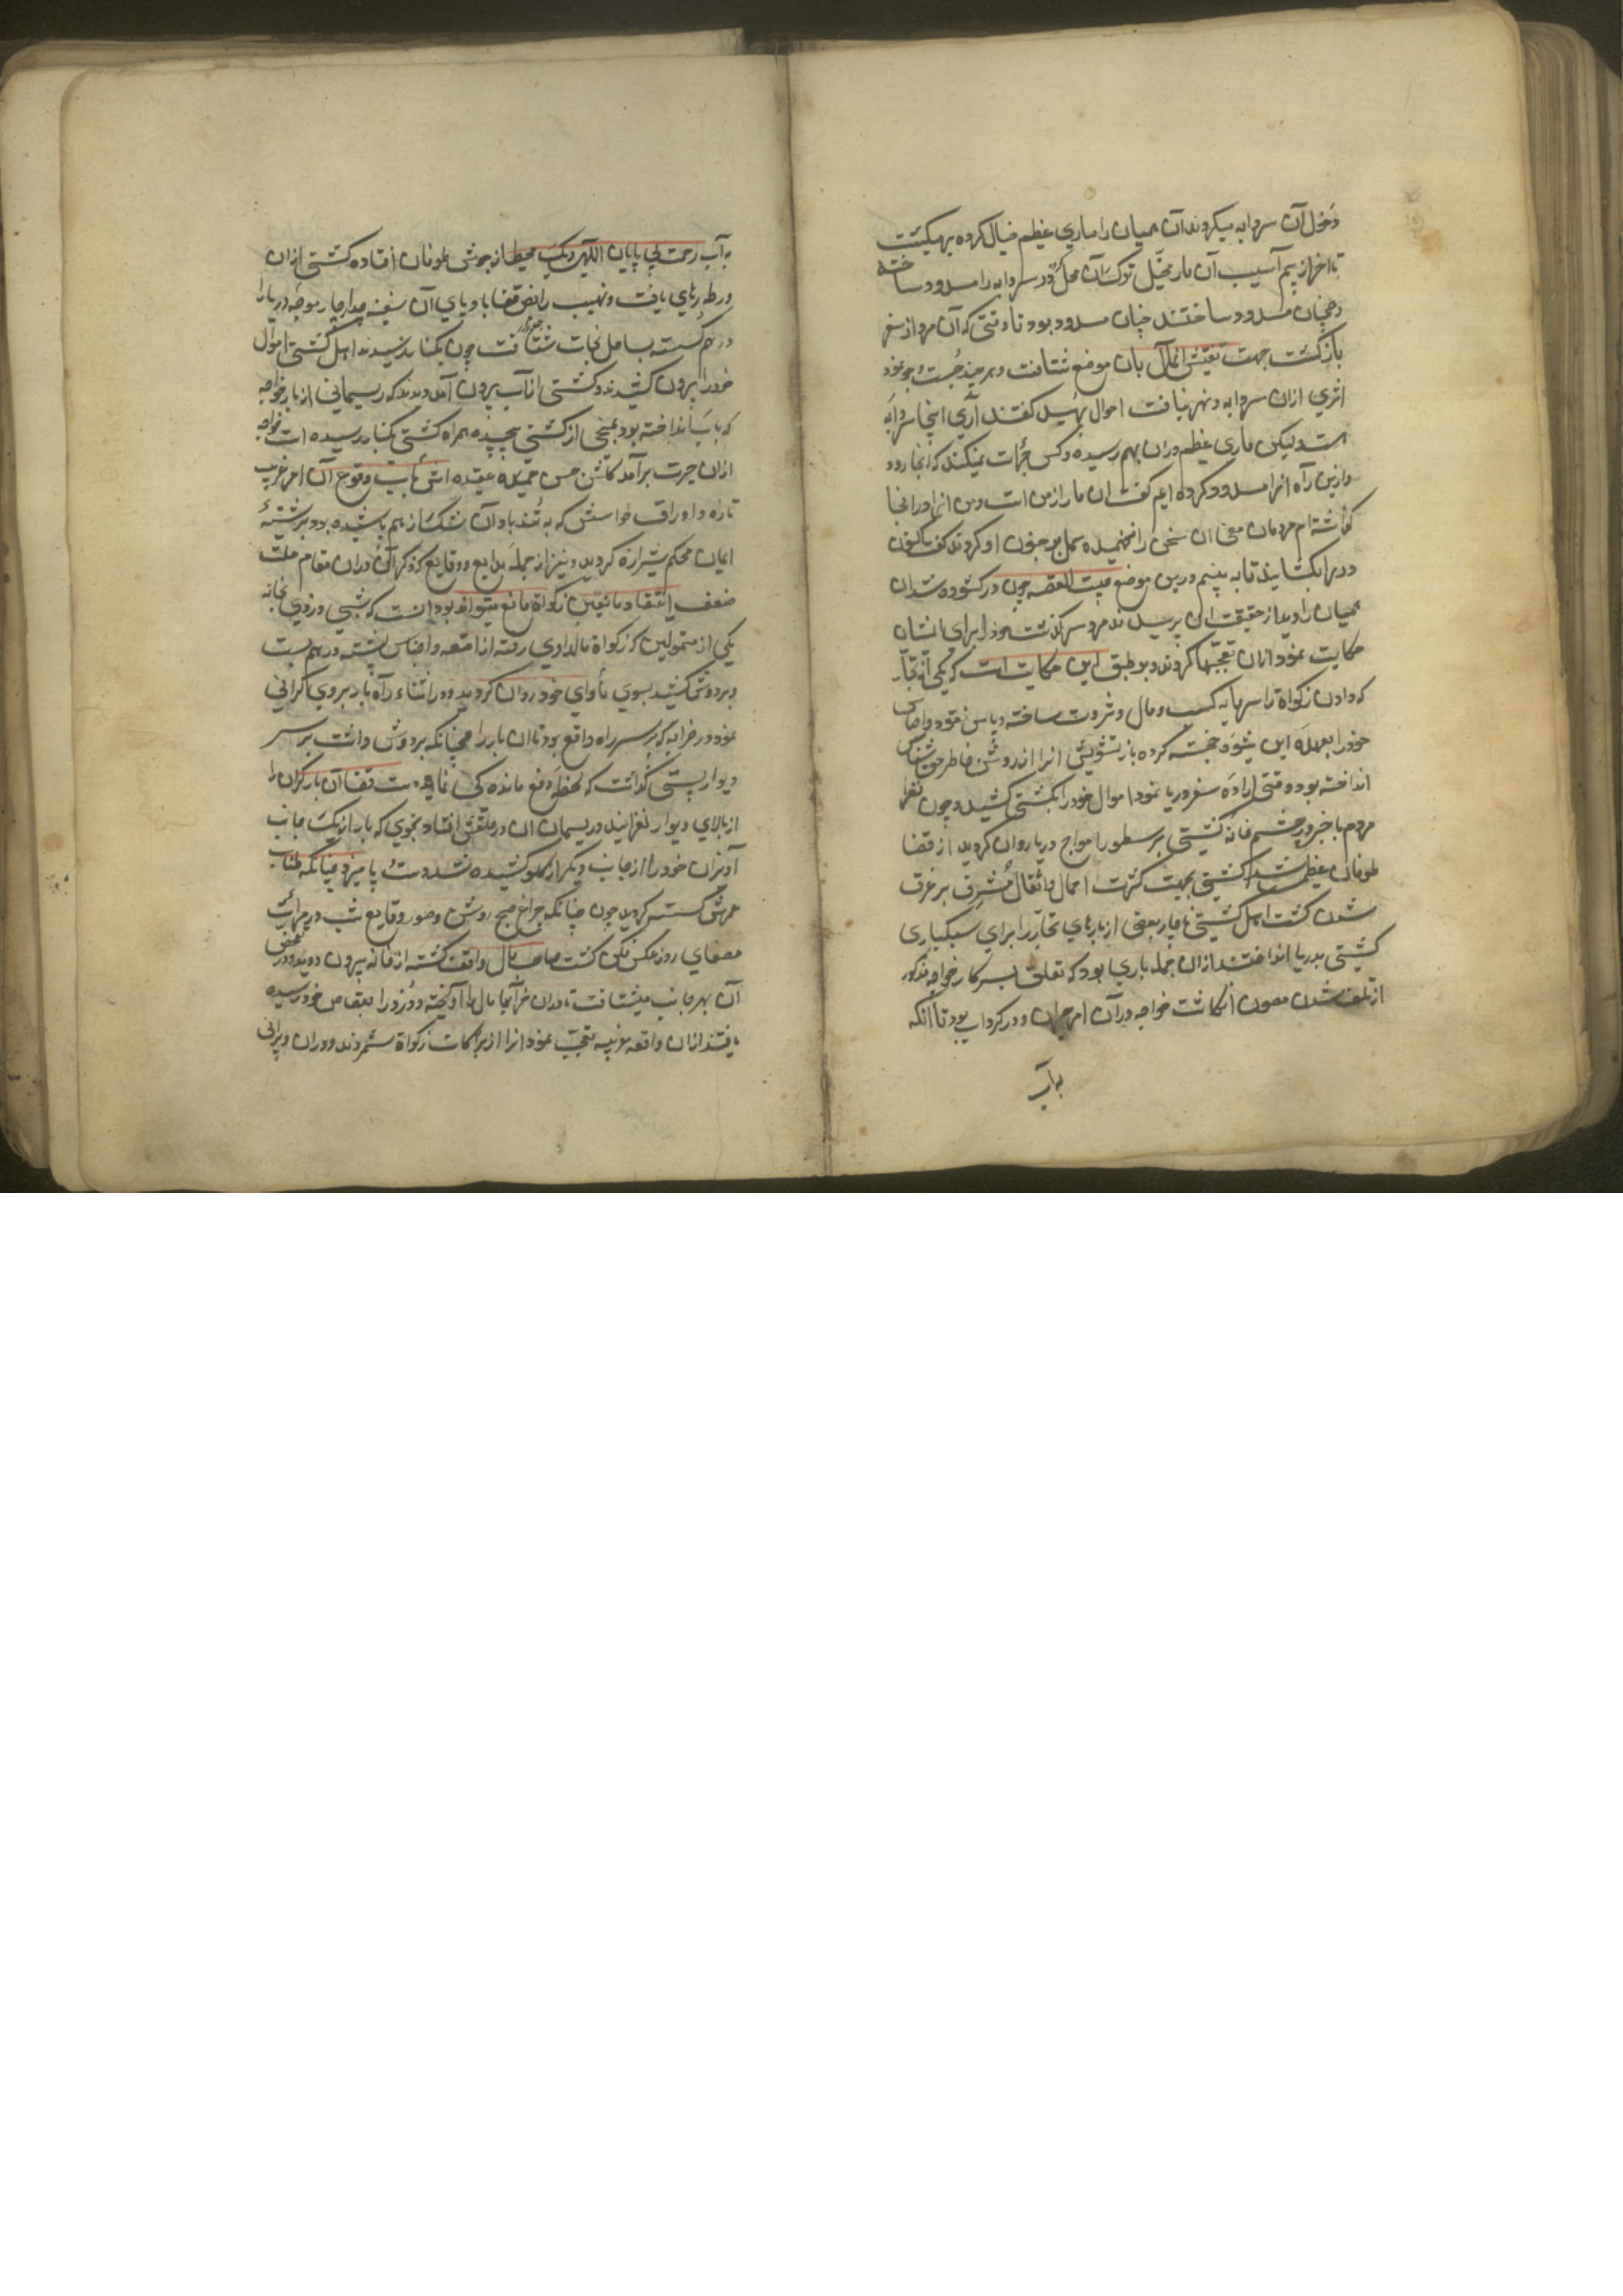 دخول آن سردابه میکردند آن همیان را ماری عظیم خیال کرده بر میگشت
تا آخر از بیم آسیب آن مار مخیّل ترک آن محل و در سردابه را مسدود ساخته
و همچنان مسدود ساختند چنان مسدود بود تا وقتی که آن مرد از سفر
بازگشت جهت تفتیش انمال بان موضع شتافت و هر چند جست و جو نمود
اثری ازان سردابه و نهر نیافت احوال پرسید گفتند آری اینجا سردابه
است و لیکن ماری عظیم دران بهم رسیده و کس جرأت نمیکند که انجا رود
و ازین راه انرا مسدود کرده ایم گفت ان مار از من است و من انرا در انجا
گذاشته ام مردمان معنی ان سخن را نفهمیده حمل بر جنون او کردند گفت اکنون
در بر ما بکشایند تا به بینم درین موضع چیست القصه چون در کشوده شد ان
همیان را دید از حقیقت ان پرسیدند مرد سرگذشت خود را برای ایشان
حکایت نمود ازان تعجبها کردند و بر طبق این حکایت است که یکی از تجّار
که دادن زکواة را سرمایه کسب و مال و ثروت ساخته و پاس نقود و اجناس
خود را بعهده این شیوه خجسته کرده بار تشویش انرا از دوش خاطر حق شناس
انداخته بود وقتی اراده سفر دریا نمود اموال خود را بکشتی کشید و چون نظر
مردم با خبر در چشم خانه کشتی بر سطور امواج دریا روان گردید از قضا
طوفانی عظیم شد و کشتی بجهت کثرت احمال و اثقال مشرف بر غرق
شدن گشت اهل کشتی ناچار بعضی از بارهای تجّار را برای سبکباری
کشتی بدریا انداختند ازان جمله باری بود که تعلق بسرکار خواجه مذکور
از تلف شدن مصون انگاشت خواجه در آن امر حیران و در گرداب بود تا آنکه
به آب
به آب رحمت بی پایان الهی دیگ محیط از جوش طوفان افتاده کشتی ازان
ورطه رهای یافت و نهیب رایض قضا باد پای آن سفینه چهار موجه دریا را
در هم شکسته بساحل نجات شتافت چون بکنار رسیدند اهل کشتی اموال
خود را بیرون کشیدند و کشتی از آب بیرون آمد دیدند که ریسمانی از بار خواجه
که باب انداخته بود بمیخی از کشتی پیچیده همراه کشتی بکنار رسیده است خواجه
ازان حیرت برآمد گلشن حسن عقیده اش بآب وقوع آن امر غریب
تازه و اوراق حواسش که به تند باد آن شک از هم پاشیده بود برشتهٔ
ایمان محکم شیرازه گردید و نیز از جمله بدایع و وقایع که ذکر آن دران مقام علت
ضعف اعتقاد مانعین زکواة مانع میتواند بود انست که شبی دزدی بخانه
یکی از متمولین که زکواة مال دادی رفته از امتعه و اجناس پشته در هم بست
و بر دوش کشیده بسوی مأوای خود روان گردید و در اثناء راه بار بر وی گرانی
نمود در خرابه که بر سر راه واقع بود تا ان بار را همچنانکه بر دوش داشت بر سر
دیوار پستی گذاشت که لحظه دفع ماندگی نماید قضا آن بار گران را
از بالای دیوار لغزانید و ریسمان ان در حلقش افتاد بنحوی که بار از یک جانب
آویزان و خود از جانب دیگر از گلو کشیده شد و دست و پا میزد چنانکه طناب
عمرش گسسته گردید چون چنانکه چراغ صبح روشن و صور وقایع شب در مرآت
مصفای روز عکس فکن گشت صاحب مال واقف گشته از خانه بیرون دوید و در تفحص
آن بهر جانب میشتافت تا دران خرابها مال را آویخته و دزد را بقصاص خود رسیده
یافتند ازان واقعه غریبه تعجب نموده انرا از برکات زکواة شمردند و دران ویرانی